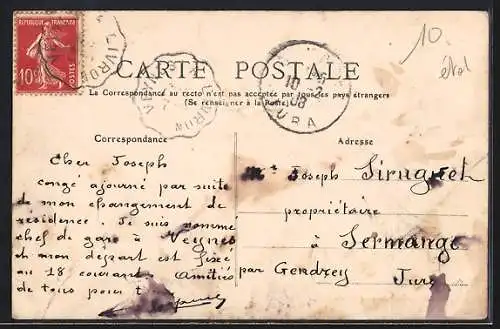 REPUBLIQUE FRANÇAISE
10
POSTES
LIVRON
10
état
CARTE POSTALE
La Correspondance au recto n'est pas acceptée par tous les pays étrangers
(Se renseigner à la Poste)
LIVRON
10
08
JURA
Correspondance
Cher Joseph
congé ajourné par suite
de mon changement de
résidence. Je suis nommé
chef de gare à Veynes
et mon départ est fixé
au 18 courant. Amitiés
de tous pour
Adresse
Mr Joseph Sirugue
propriétaire
à Sermange
par Gendrey
Jura